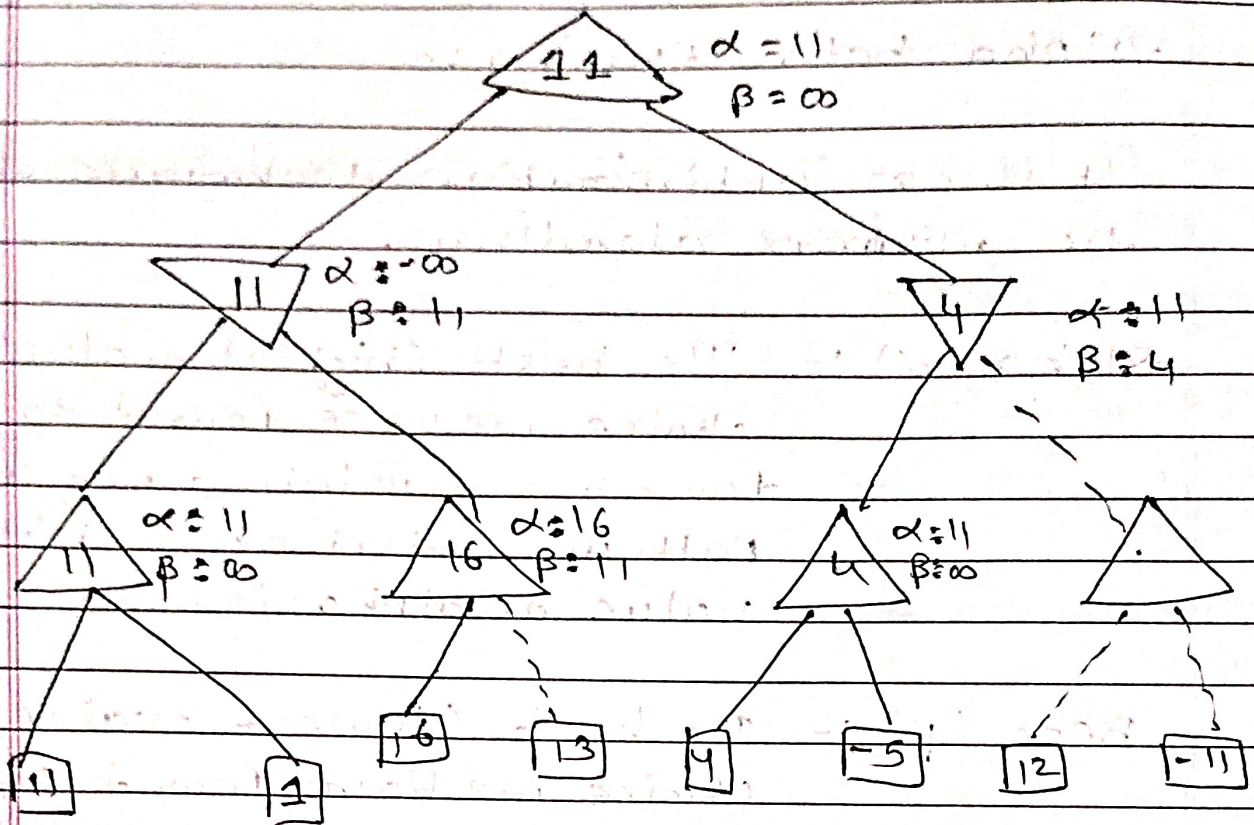 11
α = 11
β = ∞
11
α = -∞
β = 11
4
α = 11
β = 4
11
α = 11
β = ∞
16
α = 16
β = 11
4
α = 11
β = ∞
11
1
16
13
4
-5
12
-11